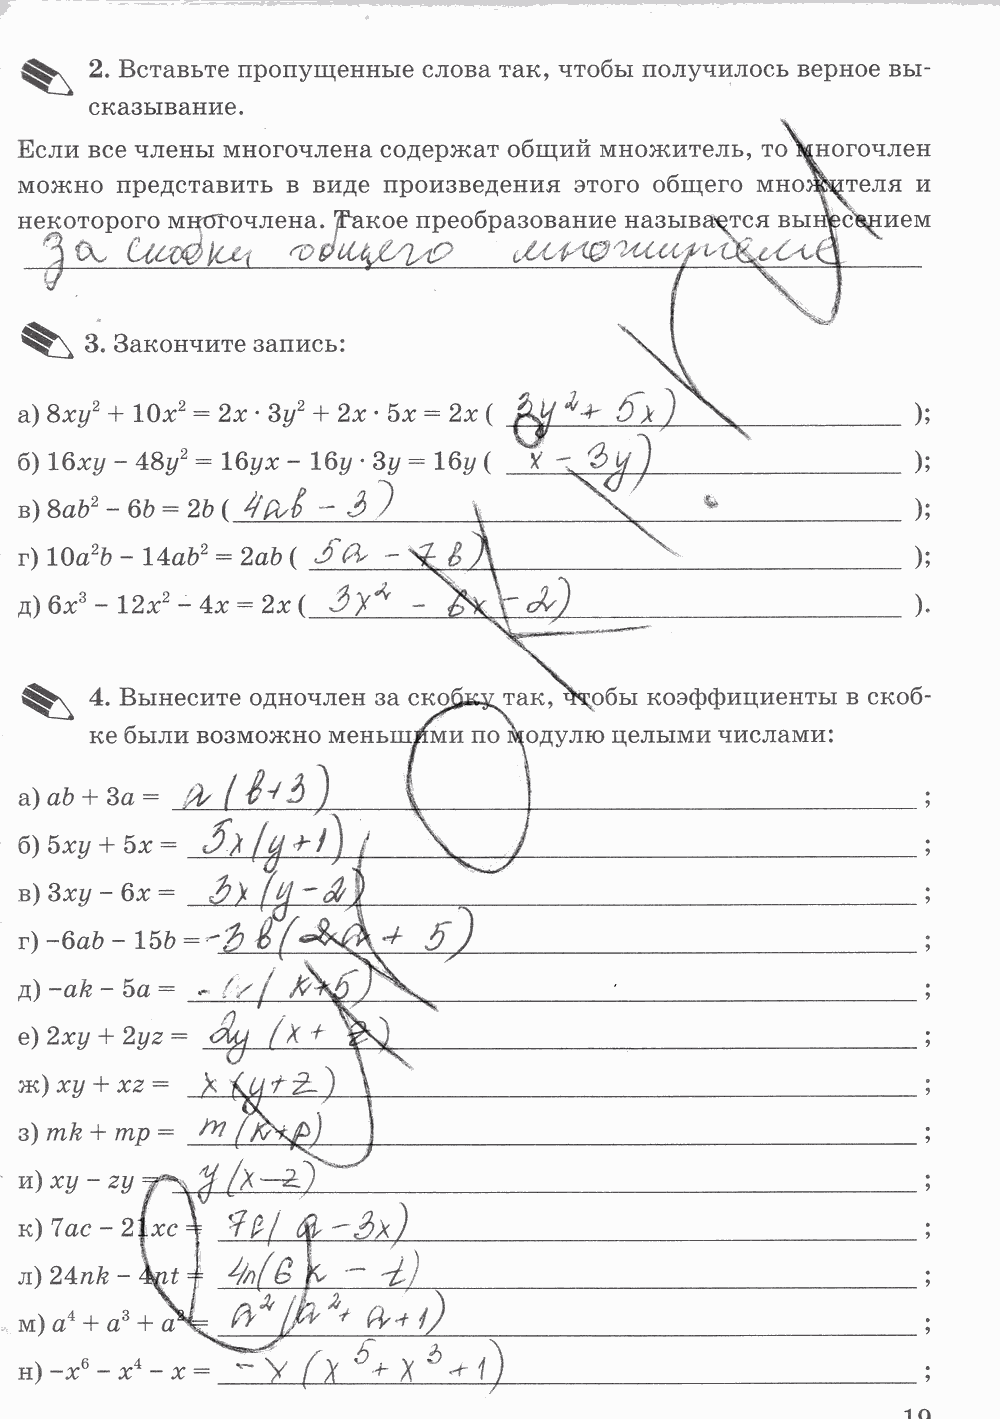 2. Вставьте пропущенные слова так, чтобы получилось верное вы-
сказывание.
Если все члены многочлена содержат общий множитель, то многочлен
можно представить в виде произведения этого общего множителя и
некоторого многочлена. Такое преобразование называется вынесением
за скобки общего множителе
3. Закончите запись:
а) 8xy² + 10x² = 2x · 3y² + 2x · 5x = 2x ( 3y² + 5x) );
б) 16xy − 48y² = 16yx − 16y · 3y = 16y ( x − 3y) );
в) 8ab² − 6b = 2b ( 4ab − 3) );
г) 10a²b − 14ab² = 2ab ( 5a − 7b) );
д) 6x³ − 12x² − 4x = 2x ( 3x² − 6x − 2) ).
4. Вынесите одночлен за скобку так, чтобы коэффициенты в скоб-
ке были возможно меньшими по модулю целыми числами:
а) ab + 3a = a(b+3) ;
б) 5xy + 5x = 5x(y+1) ;
в) 3xy − 6x = 3x(y−2) ;
г) −6ab − 15b = −3b(2a + 5) ;
д) −ak − 5a = −a(k+5) ;
е) 2xy + 2yz = 2y (x + z) ;
ж) xy + xz = x (y+z) ;
з) mk + mp = m (k+p) ;
и) xy − zy = y (x−z) ;
к) 7ac − 21xc = 7c( a − 3x) ;
л) 24nk − 4nt = 4n(6k − t) ;
м) a⁴ + a³ + a² = a² (a² + a + 1) ;
н) −x⁶ − x⁴ − x = −x (x⁵ + x³ + 1) ;
19